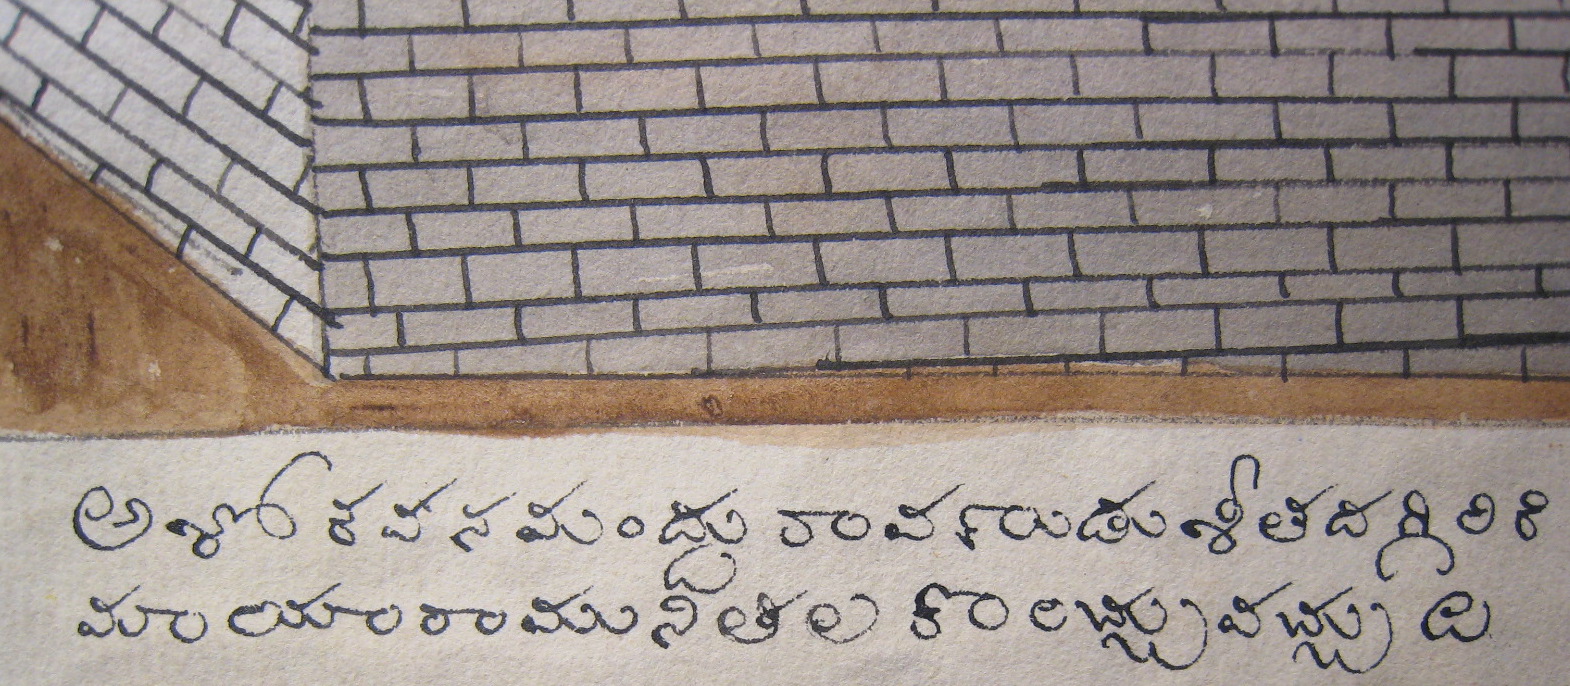 అశోకవనమంద్దు రావణరుడు శీతదగ్గిరికి
మాయారామునితల కొంచ్చువచ్చుది